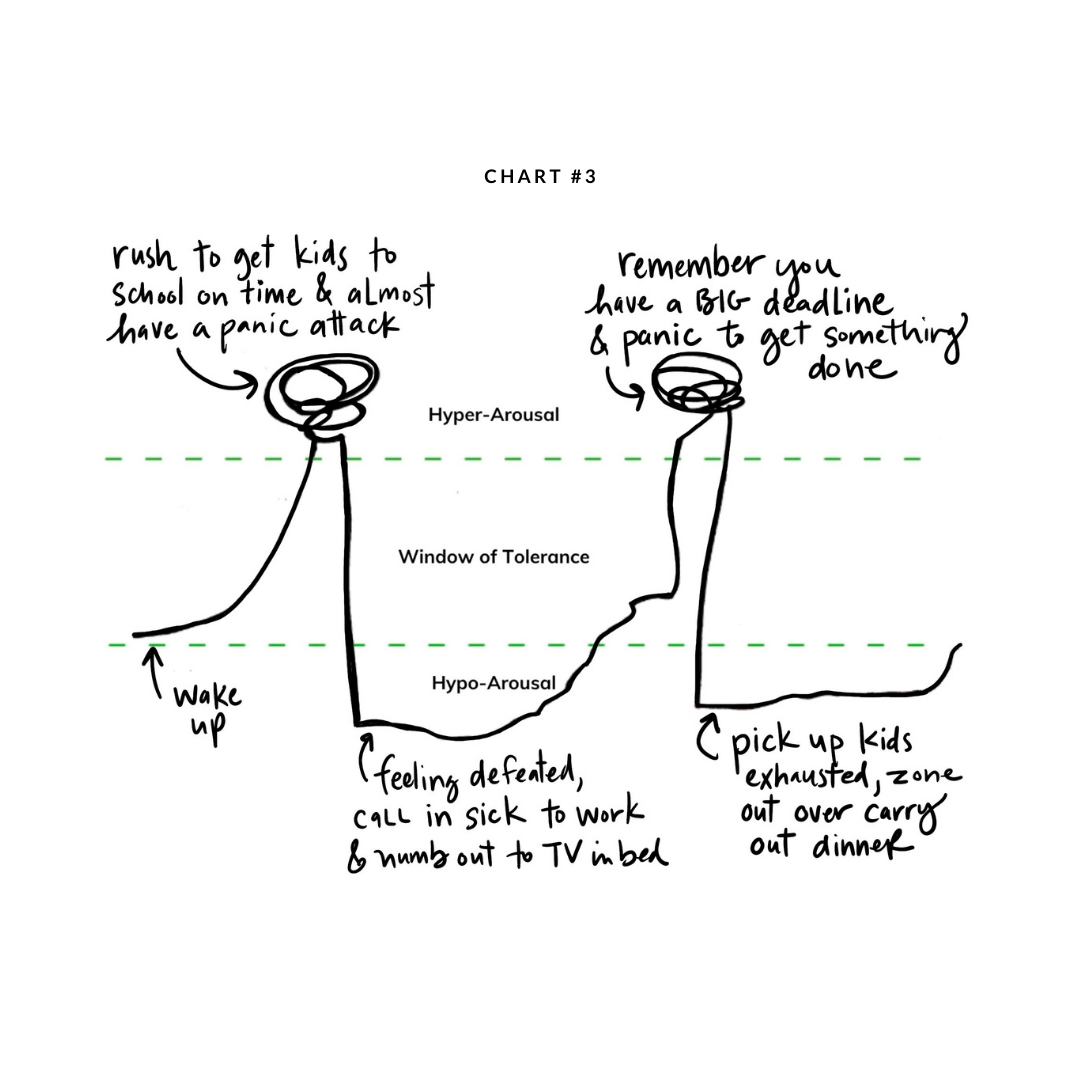 CHART #3
rush to get kids to
school on time & almost
have a panic attack
remember you
have a BIG deadline
& panic to get something
done
Hyper-Arousal
Window of Tolerance
Hypo-Arousal
wake
up
feeling defeated,
call in sick to work
& numb out to TV in bed
pick up kids
exhausted, zone
out over carry
out dinner